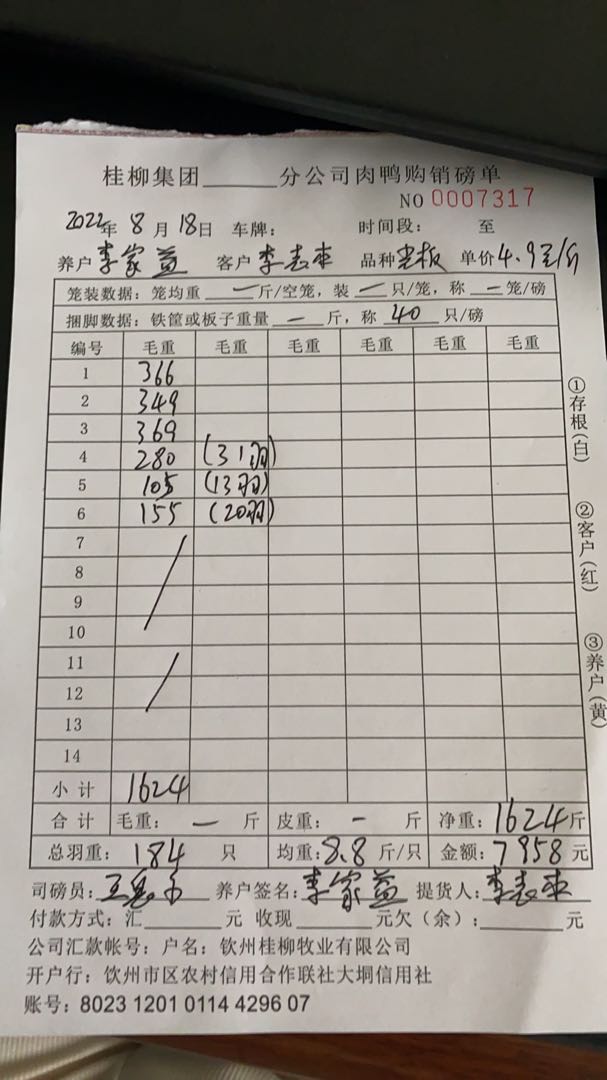 桂柳集团______分公司肉鸭购销磅单
NO 0007317
2022年 8月 18日 车牌: 时间段: 至
养户 李家益 客户 李志来 品种 光板 单价 4.9元/斤
笼装数据: 笼均重 一 斤/空笼, 装 一 只/笼, 称 一 笼/磅
捆脚数据: 铁筐或板子重量 一 斤, 称 40 只/磅
编号 毛重 毛重 毛重 毛重 毛重 毛重
1 366
2 349
3 369
4 280 (31羽)
5 105 (13羽)
6 155 (20羽)
7
8
9
10
11
12
13
14
小计 1624
合计 毛重: 一 斤 皮重: 一 斤 净重: 1624斤
总羽重: 184 只 均重: 8.8 斤/只 金额: 7958 元
司磅员: 养户签名: 李家益 提货人: 李志来
付款方式: 汇______元 收现______元欠(余):______元
公司汇款帐号: 户名: 钦州桂柳牧业有限公司
开户行: 钦州市区农村信用合作联社大垌信用社
账号: 8023 1201 0114 4296 07
①存根(白)
②客户(红)
③养户(黄)